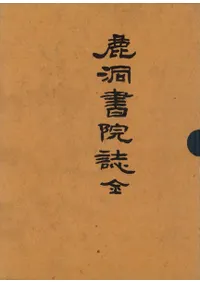 鹿洞書院誌全